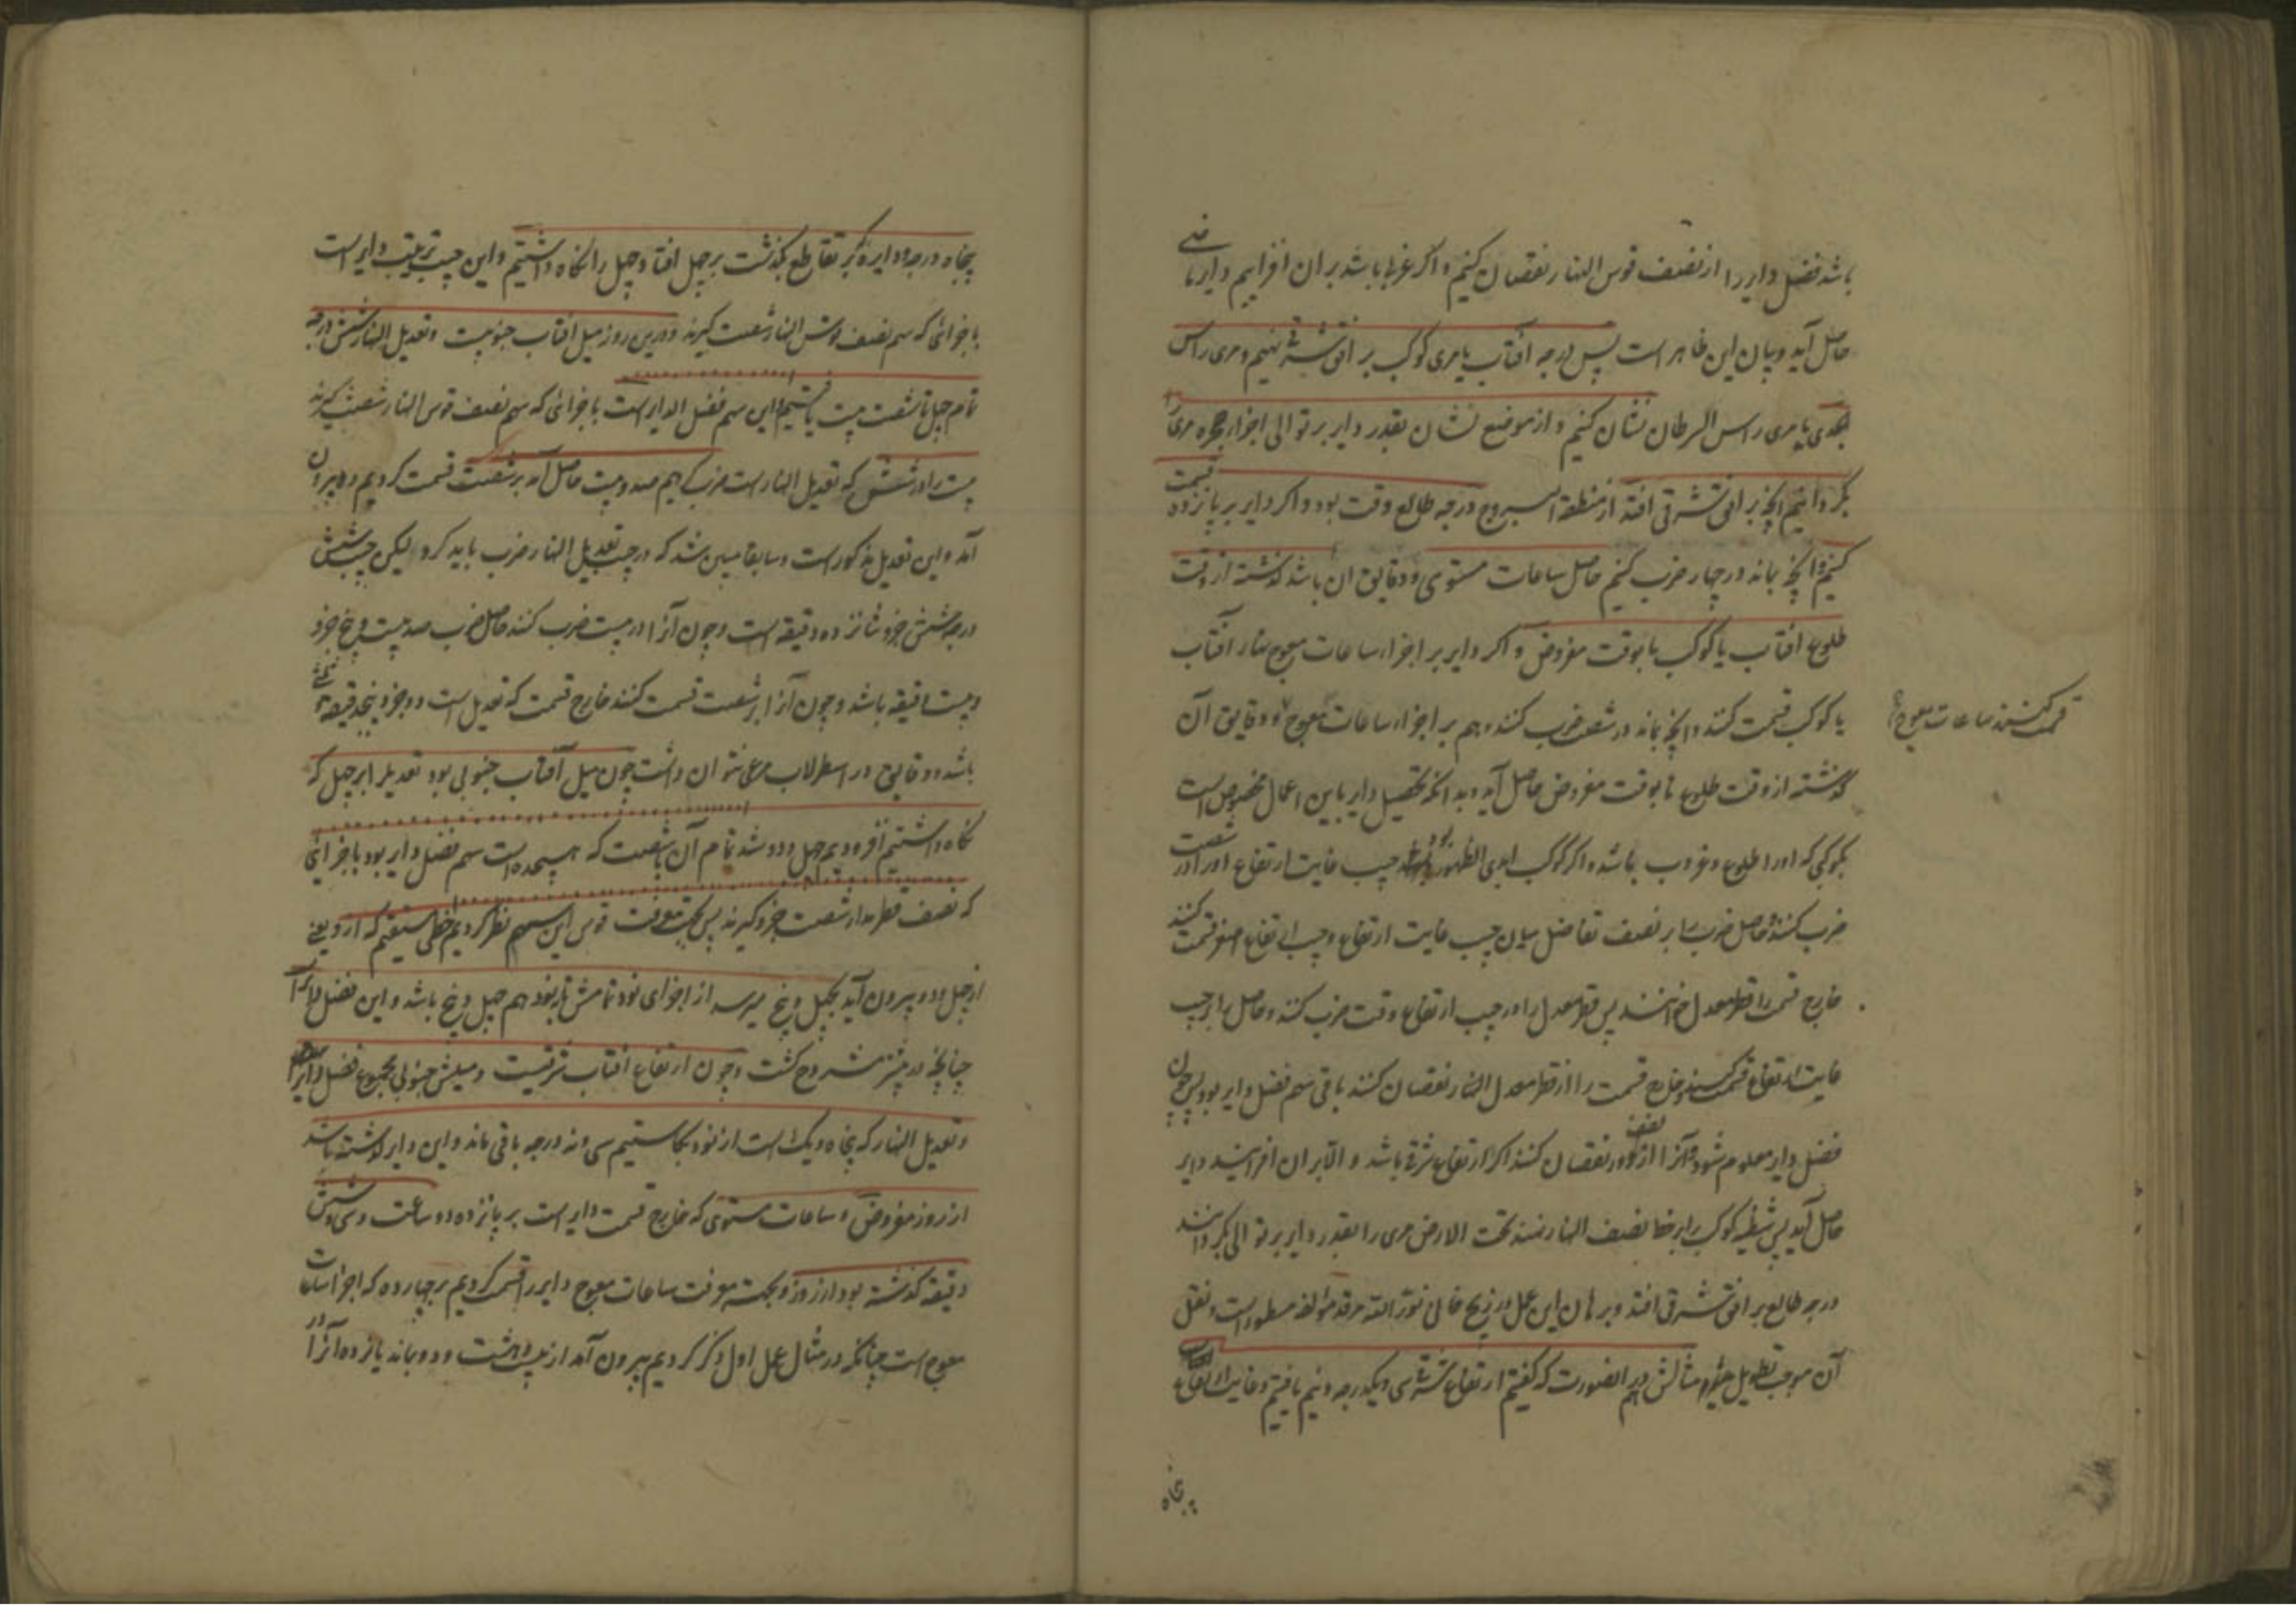 باشد فضل دایر را از نصف قوس النهار نقصان کنیم و اگر غربی باشد بران افزاییم دایر ماضی
حاصل آید و بیان این ظاهر است پس درجه آفتاب یا مری کوکب بر افق شرقی نهیم و مری راس
الجدی یا مری راس السرطان نشان کنیم و از موضع نشان بقدر دایر بر توالی اجزاء حجره مری را
بگردانیم آنچه بر افق شرقی افتد از منطقة البروج درجه طالع وقت بود و اگر دایر بر پانزده قسمت
کنیم و آنچه بماند در چهار ضرب کنیم حاصل ساعات مستوی و دقایق آن باشد گذشته از وقت
طلوع آفتاب یا کوکب تا بوقت مفروض و اگر دایر بر اجزاء ساعات معوج نهار آفتاب
یا کوکب قسمت کنند و آنچه بماند در شصت ضرب کنند و هم بر اجزاء ساعات معوج و دقایق آن
قسمت کنند ساعات معوج
گذشته از وقت طلوع تا بوقت مفروض حاصل آید و بدانکه تحصیل دایر باین اعمال مخصوص است
بکوکبی که او را طلوع و غروب باشد و اگر کوکب ابدی الظهور بود جیب غایت ارتفاع او را در شصت
ضرب کنند و حاصل ضرب را بر نصف تفاضل میان جیب غایت ارتفاع و جیب ارتفاع اصغر قسمت کنند
خارج قسمت را قطر معدل خوانند پس قطر معدل را در جیب ارتفاع وقت ضرب کنند و حاصل را بر جیب
غایت ارتفاع قسمت کنند و خارج قسمت را از قطر معدل النهار نقصان کنند باقی سهم فضل دایر بود پس چون
فضل دایر معلوم شود آنرا از نصف دور نقصان کنند اگر ارتفاع شرقی باشد و الا بر آن افزایند دایر
حاصل آید پس شظیه کوکب را بر خط نصف النهار نهند تحت الارض مری را بقدر دایر بر توالی بگردانند
درجه طالع بر افق شرقی افتد و برهان این عمل در زیج خانی نور الله مرقد مؤلفه مسطور است و نقل
آن موجب تطویل مثالش هم در انصورت که گفتیم ارتفاع شرقی سی و یکدرجه و نیم یافتیم و غایت ارتفاع
پنجاه
پنجاه درجه و دایره که بر تقاطع بگذشت بر چهل افتاد چهل را نگاه داشتیم و این جیب ترتیب دایر است
باجزائی که سهم نصف قوس النهار شصت گیرند و درین روز میل آفتاب جنوبیست و تعدیل النهار شش درجه
تمام چهل تا شصت بیست یافتیم و این سهم فضل الدایر است باجزائی که سهم نصف قوس النهار شصت گیرند
بیست را در شش که تعدیل النهار است ضرب کردیم صد و بیست حاصل آمد بر شصت قسمت کردیم دو بیرون
آمد و این تعدیل مذکور است و سابقا مبین شد که در جیب تعدیل النهار ضرب باید کرد لیکن جیب شش
درجه شش جزو شانزده دقیقه است و چون آنرا در بیست ضرب کنند حاصل ضرب صد بیست و پنج جزو
و بیست دقیقه باشد و چون آنرا بر شصت قسمت کنند خارج قسمت که تعدیل است دو جزو و پنج دقیقه
باشد و دقایق در اسطرلاب مرعی نتوان داشت چون میل آفتاب جنوبی بود تعدیل را بر چهل که
نگاه داشتیم افزودیم چهل و دو شد تمام آن تا شصت که هیجده است سهم فضل دایر بود باجزائی
که نصف قطر مدار شصت جزو گیرند پس بجهت معرفت قوس این سهم نظر کردیم خطی مستقیم که از روی
از چهل و دو بیرون آید بچهل و پنج میرسد از اجزای نود تمامش تا نود هم چهل و پنج باشد و این فضل دایر است
چنانچه در پیشتر مشروح گشت و چون ارتفاع آفتاب شرقیست و میلش جنوبی مجموع فضل دایر
و تعدیل النهار که پنجاه و یک است از نود بکاستیم سی و نه درجه باقی ماند و این دایر گذشته باشد
از روز مفروض و ساعات مستوی که خارج قسمت دایر است بر پانزده دو ساعت و سی و شش
دقیقه گذشته بود از روز و بجهت معرفت ساعات معوج دایر را قسمت کردیم بر چهارده که اجزا ساعات
معوج است چنانکه در مثال عمل اول ذکر کردیم بیرون آمد از بیست و هشت و دو بماند یازده آنرا در